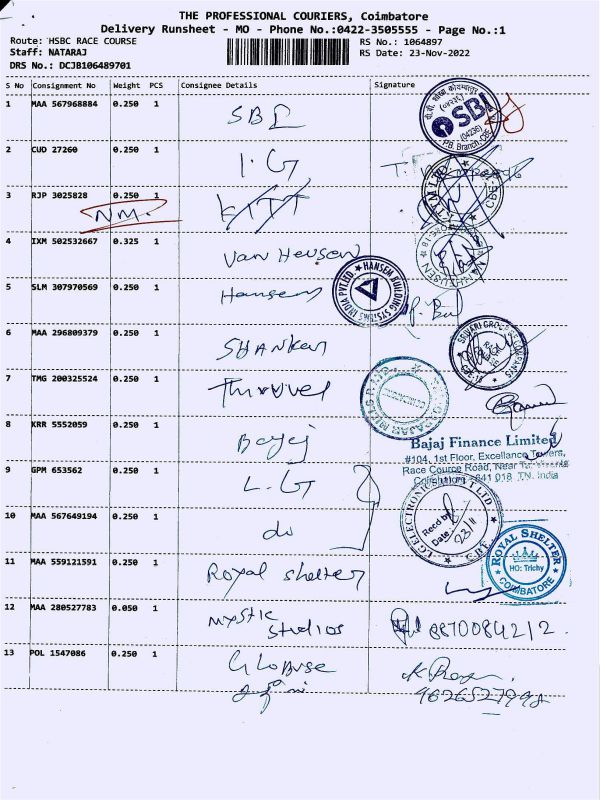 THE PROFESSIONAL COURIERS, Coimbatore
Delivery Runsheet - MO - Phone No.:0422-3505555 - Page No.:1
Route: HSBC RACE COURSE
RS No.: 1064897
Staff: NATARAJ
RS Date: 23-Nov-2022
DRS No.: DCJB106489701
S No Consignment No Weight PCS Consignee Details Signature
1 MAA 567968884 0.250 1 SBI
SBI
(04236)
P.B. Branch, CBE
2 CUD 27260 0.250 1 I.G
3 RJP 3025828 0.250 1
NM.
4 IXM 502532667 0.325 1 Van Heusen
5 SLM 307970569 0.250 1 Hansen
HANSEN BUILDING SYSTEMS INDIA PVT LTD
6 MAA 296809379 0.250 1 Shanker
7 TMG 200325524 0.250 1
8 KRR 5552059 0.250 1 Bajaj
Bajaj Finance Limited
#104, 1st Floor, Excellance Towers,
Race Cource Road, Near
Coimbatore - 641 018 TN. India
9 GPM 653562 0.250 1 L.G
LG ELECTRONICS PVT LTD
Recd by
Date: 23/11
CBE
10 MAA 567649194 0.250 1 do
11 MAA 559121591 0.250 1 Royal Shelter
ROYAL SHELTER
HO: Trichy
COIMBATORE
12 MAA 280527783 0.050 1 Mystic
Studios
8870084212.
13 POL 1547086 0.250 1